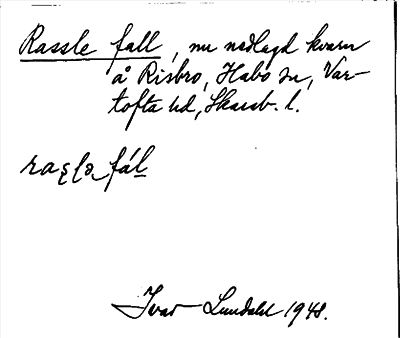 Rassle fall, nu nedlagd kvarn
å Risbro, Habo sn, Var-
tofta hd, Skarab. l.
fål
Ivar Lundahl 1948.